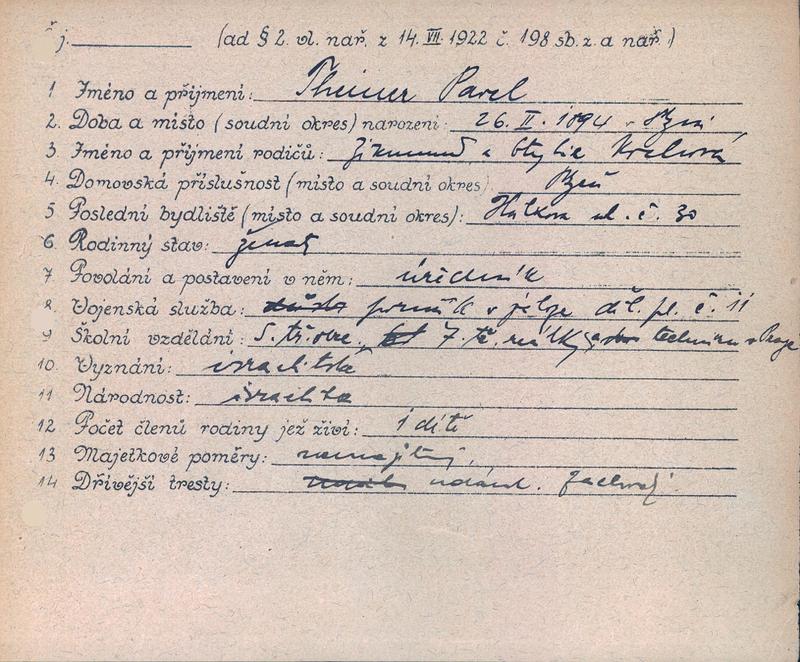 j. (ad § 2. vl. nař. z 14. VII. 1922 č. 198 sb. z. a nař.)
1 Jméno a příjmení: Theiner Pavel
2. Doba a místo (soudní okres) narození: 26. II. 1894 v Plzni
3. Jméno a příjmení rodičů: Zikmund a Otylie Krausová
4. Domovská příslušnost (místo a soudní okres) Plzeň
5 Poslední bydliště (místo a soudní okres): Hálkova ul. č. 30
6. Rodinný stav: ženat
7 Povolání a postavení v něm: úředník
8. Vojenská služba: poručík v děl. pl. č. 11
9 Školní vzdělání: 5. tř. obec. 7. tř. reálky techniku v Praze
10. Vyznání: israelitské
11 Národnost: israelita
12 Počet členů rodiny jež živí: 1 dítě
13 Majetkové poměry: nemajetný,
14 Dřívější tresty: údajně. zachovalý